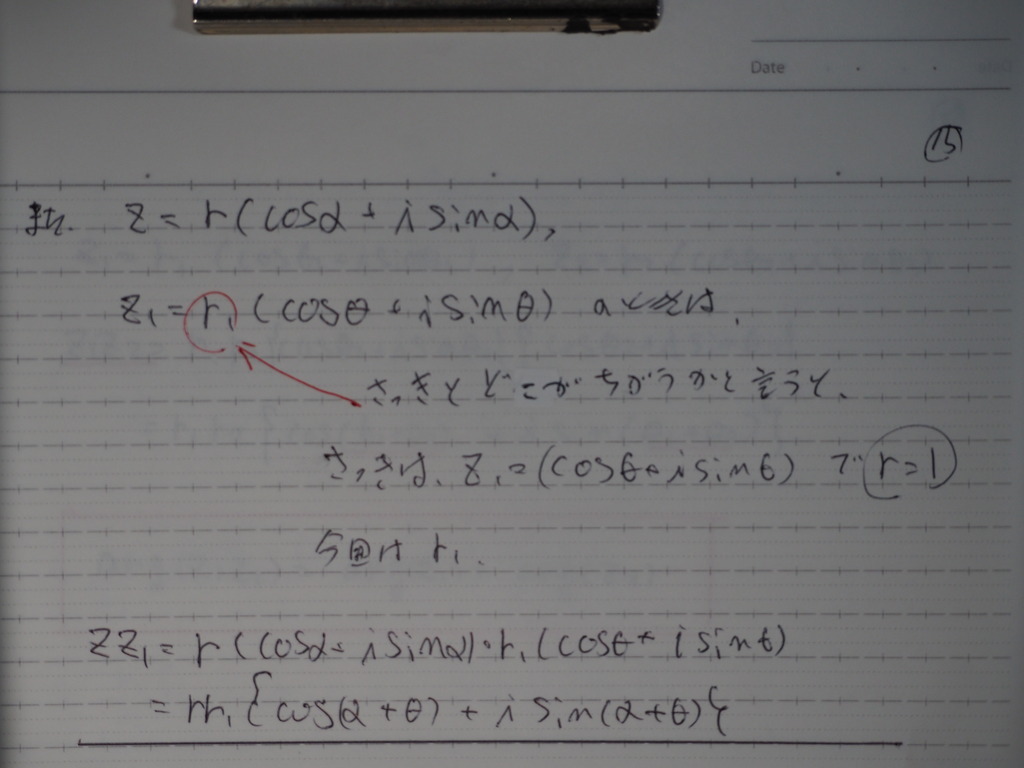 Date
⑮
また. z = r(cosα + i sinα),
z₁ = r₁(cosθ + i sinθ) のときは,
さっきとどこがちがうかと言うと、
さっきは、z₁ = (cosθ + i sinθ) で r=1
今回は r₁.
zz₁ = r(cosα + i sinα)・r₁(cosθ + i sinθ)
= rr₁{cos(α+θ) + i sin(α+θ)}